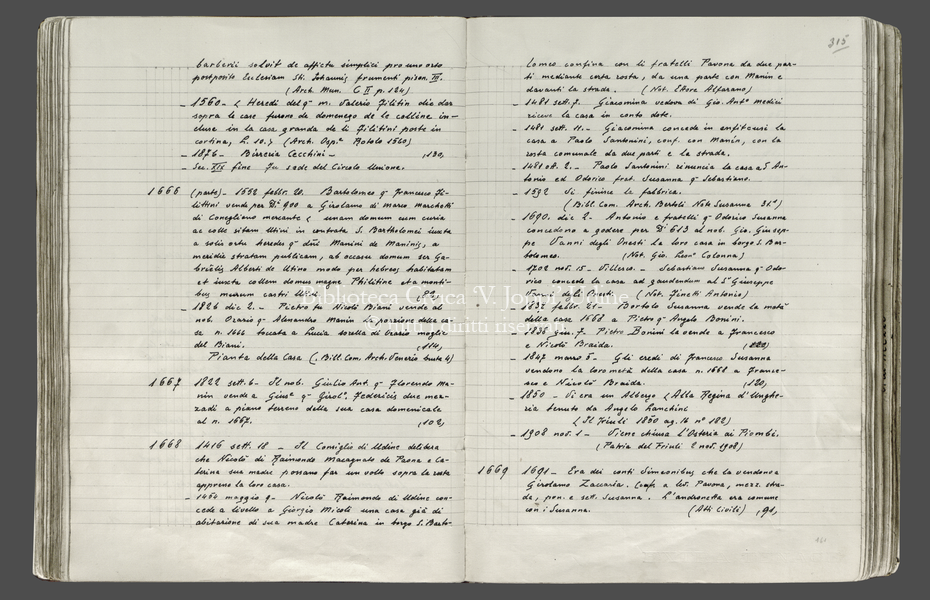 barberii solvit de afficta simplici pro uno orto
postposito Eclesiam Sti. Johannis frumenti pison. III.
(Arch. Mun. C II p. 124)
- 1560 - Heredi del q. m. Valerio Filitin die dar
sopra le case furone da domenego de le colline in-
cluse in la casa granda de li Filitini poste in
cortina, L. 10. (Arch. Osp. Rotolo 1560)
- 1876 - Birreria Cecchini - ,130,
Sec. XIX fine fu sede del Circolo Unione.
1666 (parte) - 1552 febbr. 20. Bartolomeo q. Francesco Fi-
littini vende per D. 900 a Girolamo di Marco Marchetti
di Conegliano mercante unam domum cum curia
ac colle sitam Utini in contrata S. Bartholomei iuxta
a solis ortu heredes q. dñi Manini de Maninis, a
meridie stratam publicam, ab occasu domum ser Ga-
brielis Alberti de Utino modo per hebreos habitatam
et iuxta collem domus magne Philitine et a monti-
bus murum castri
- 1826 dic 2. - Pietro fu Nicolò Biani vende al
nob. Orazio q. Alemandro Manin la porzione della ca-
sa n. 1666 toccata a Lucia sorella di Orazio moglie
del Biani. ,114,
Pianta della Casa (Bibl. Com. Arch. Venerio busta 4)
1667 1822 sett. 6 - Il nob. Giulio Ant. q. Florendo Ma-
nin vende a Gius. q. Girol. Federicis due mez-
zadi a piano terreno della sua casa domenicale
al n. 1667. ,102,
1668 1416 sett. 18 - Il Consiglio di Udine delibera
che Nicolò di Raimondo Macagnato de Paona e Ca-
terina sua madre possano far un volto sopra la rosta
appresso la loro casa.
- 1450 maggio 9 - Nicolò Raimondo di Udine con-
cede a livello a Giorgio Micoli una casa già di
abitazione di sua madre Caterina in borgo S. Barto-
315
lomeo confina con li fratelli Pavona da due par-
ti mediante certa rosta, da una parte con Manin e
davanti la strada. (Not. Ettore Alfarano)
- 1481 sett. 7. Giacomina vedova di Gio. Ant. medici
riceve la casa in conto dote.
- 1481 sett. 11. - Giacomina concede in enfiteusi la
casa a Paolo Santonini, conf. con Manin, con la
rosta comunale da due parti e la strada.
- 1481 ott. 2. - Paolo Santonini rinuncia la casa a S An-
tonio ed Odorico frat. Susanna q. Sebastiano.
- 1592 Si finisce la fabbrica.
(Bibl. Com. Arch. Bertoli Nota Susanna
- 1690. dic 2 - Antonio e fratelli q. Odorico Susanna
concedono a godere per D. 613 al nob. Gio. Giusep-
pe Vanni degli Onesti la loro casa in borgo S. Bar-
tolomeo. (Not. Gio. Leon. Colonna)
- 1708 nov. 15 - Villesco. - Sebastiano Susanna q. Odo-
rico concede la casa ad gaudendum al S. Giuseppe
Vanni degli Onesti (Not. Finetti Antonio)
- 1832 febbr. 21 - Bortolo Susanna vende la metà
della casa 1668 a Pietro q. Angelo Bonini.
- 1838 giu. 7. Pietro Bonini la vende a Francesco
e Nicolò Braida.
- 1847 marzo 5 - Gli eredi di Francesco Susanna
vendono la loro metà della casa n. 1668 a France-
sco e Nicolò Braida. ,120,
- 1850 - Vi era un Albergo "Alla Regina d'Unghe-
ria tenuto da Angelo Zanchini
(Il Friuli 1850 ag. 16 n° 182)
- 1908 nov. 1 - Viene chiusa l'Osteria ai Piombi.
(Patria del Friuli 2 nov. 1908)
1669 1691 - Era dei conti Simeonibus che la vendono a
Girolamo Zaccaria. Conf. a lev. Pavona, mezz. stra-
da, pon. e sett. Susanna. L'andronetta era comune
con i Susanna. (Atti Civili) ,91,
161
Biblioteca Civica V. Joppi, Udine
© tutti i diritti riservati